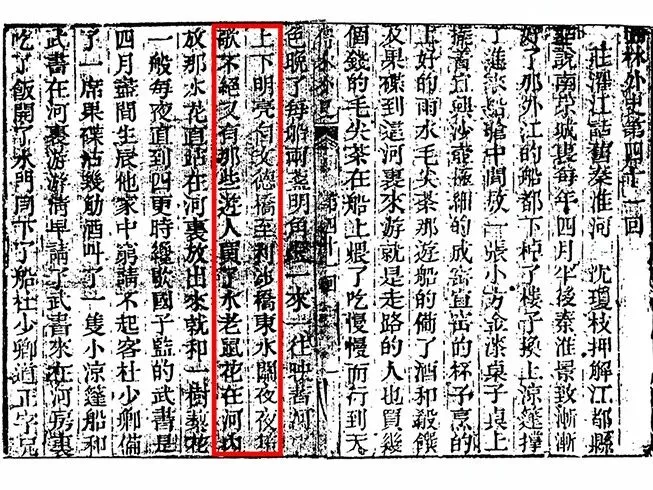 儒林外史第四十一回
莊濯江話舊秦淮河　沈瓊枝押解江都縣
話說南京城裏每年四月半後秦淮景致漸漸
好了那外江的船都下掉了樓子換上涼篷撐
了進來船艙中間放一張小方金漆桌子桌上
擺着宜興沙壺極細的成窰宣窰的杯子烹的
上好的雨水毛尖茶那遊船的備了酒和殽饌
及果碟到這河裏來遊就是走路的人也買幾
個錢的毛尖茶在船上煨了吃慢慢而行到天
儒林外史　第四十一回
色晚了每船兩盞明角燈一來一往映着河
上下明亮自文德橋至利涉橋東水關夜夜笙
歌不絕又有那些遊人買了水老鼠花在河內
放那水花直站在河裏放出來就和一樹梨花
一般每夜直到四更時纔歇國子監的武書是
四月盡間生辰他家中窮請不起客杜少卿備
了一席果碟沽幾觔酒叫了一隻小涼篷船和
武書在河裏游游清早請了武書來在河房裏
吃了飯開了水門同下了船杜少卿道正字兄